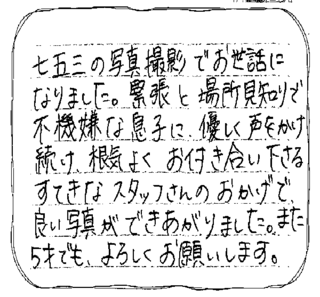 七五三の写真撮影でお世話に
なりました。緊張と場所見知りで
不機嫌な息子に、優しく声をかけ
続け、根気よくお付き合い下さる
すてきなスタッフさんのおかげで、
良い写真ができあがりました。また
5才でも、よろしくお願いします。